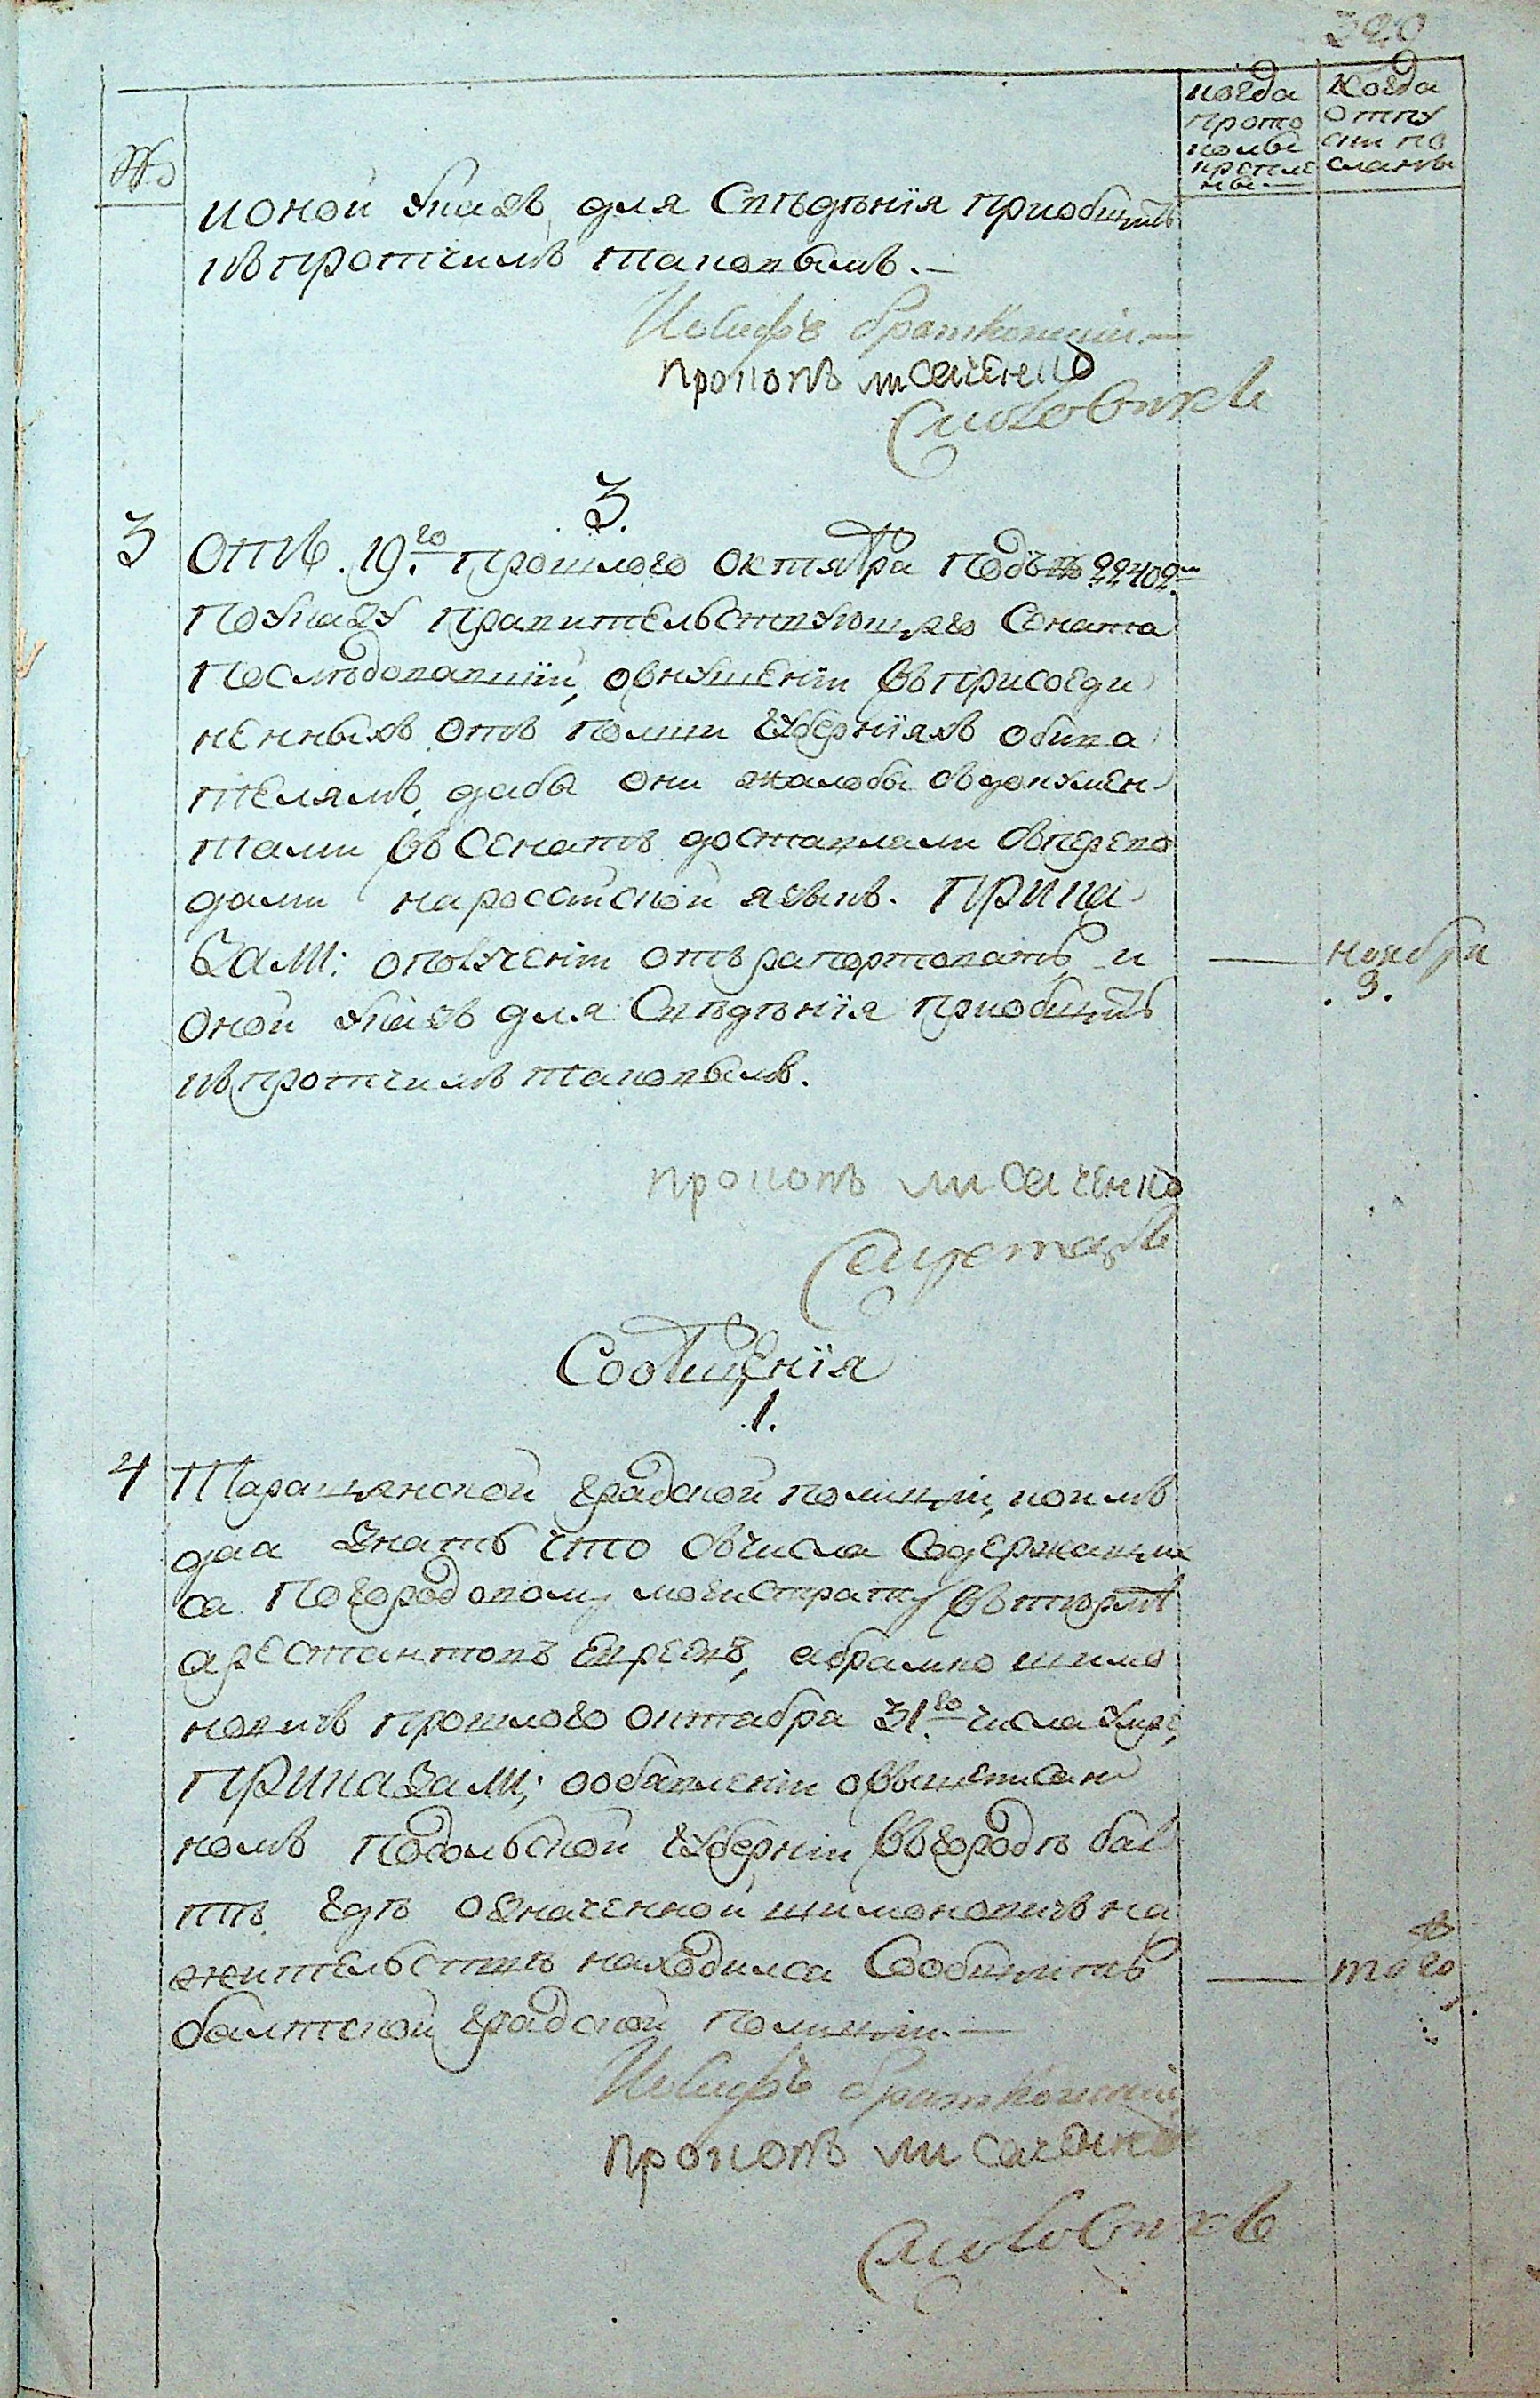 320
№
когда
прото
колы
крепле
ны
Когда
отпу
ски по
сланы
и оной Указъ для Сведѣнїя приобщить
къ протчимъ таковымъ.—
Иосифъ Братковский.—
прокопъ мисаченко
3.
3 отъ 19.го прошлого октября подъ № 22402м
по Указу Правительствующего Сената
последовавшїй, о внушенїи въ присоеди
ненныхъ отъ полши Губернїяхъ обыва
телямъ, дабы они жалобы съ докумен
тами въ Сенатъ доставляли съ перево
дами на российской языкъ. ПРИКА
ЗАЛИ: о полученїи отърапортовать, и
оной Указъ для Сведѣнїя приобщить
къ протчимъ таковымъ.
— ноября
. 9.
прокопъ мисаченко
Секретарь
Сообщенїя
1.
4 Таращанской градской полицїи, коимъ
дая знать что съ числа Содержащих
са по городовому магистрату въ тюрмѣ
арестантовъ Евреевъ, абрамко шимо
новичъ прошлого октабра 31.го числа умре,
ПРИКАЗАЛИ; о объявленїи о вышеписан
номъ Подольской Губернїи въ городѣ бал
тѣ гдѣ означенной шимоновичъ на
жительствѣ находился Сообщить
балтской градской полицїи.—
— того
Иосифъ Братковский
прокопъ мисаченко